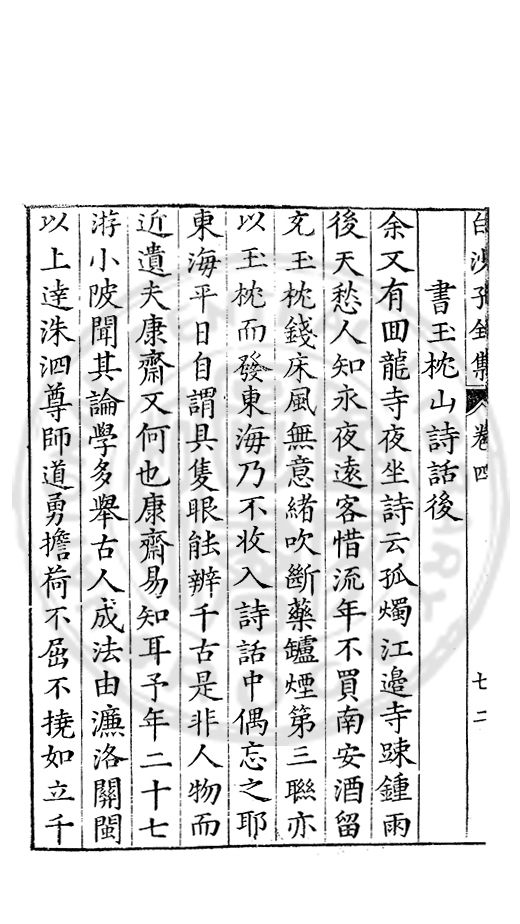 白沙子全集 卷四 七二
書玉枕山詩話後
余又有囬龍寺夜坐詩云孤燭江邉寺踈鍾雨
後天愁人知永夜逺客惜流年不買南安酒留
充玉枕錢床風無意緒吹斷藥鑪煙第三聯亦
以玉枕而發東海乃不收入詩話中偶忘之耶
東海平日自謂具隻眼能辨千古是非人物而
近遺夫康齋又何也康齋易知耳予年二十七
游小陂聞其論學多舉古人成法由濂洛關閩
以上達洙泗尊師道勇擔荷不屈不撓如立千